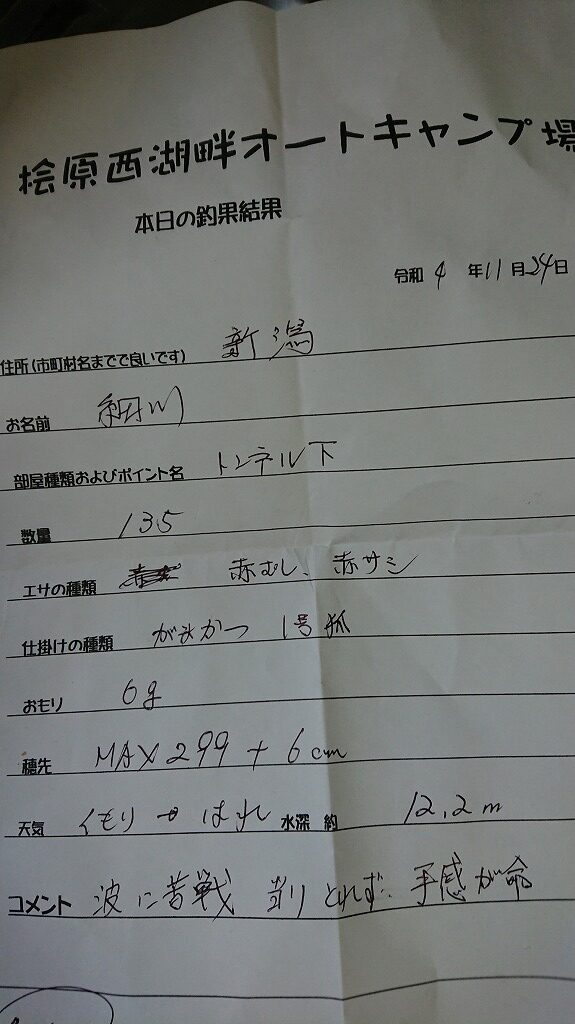 桧原西湖畔オートキャンプ場
本日の釣果結果
令和 4 年 11 月 24 日
住所(市町村名までで良いです) 新潟
お名前 細川
部屋種類およびポイント名 トンネル下
数量 135
エサの種類 赤むし、赤サシ
仕掛けの種類 がまかつ 1号 狐
おもり 6g
穂先 MAX 299 + 6cm
天気 くもり → はれ 水深 約 12.2m
コメント 波に苦戦 当り とれず. 手感が命